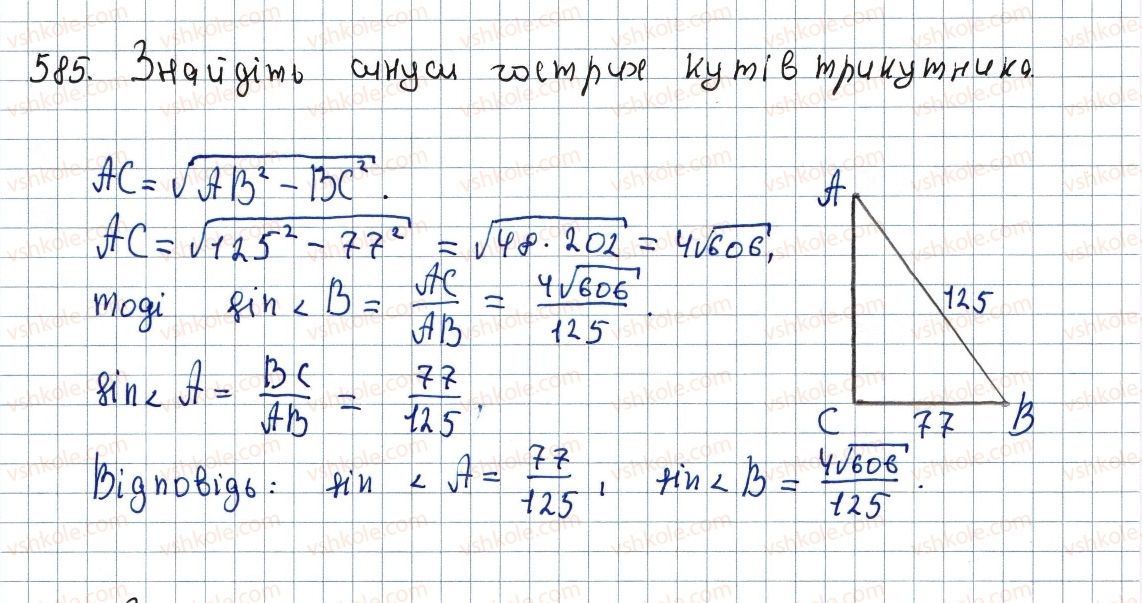 585. Знайдіть синуси гострих кутів трикутника.
AC = √(AB² − BC²).
AC = √(125² − 77²) = √(48·202) = 4√606,
тоді sin∠B = AC/AB = 4√606/125.
sin∠A = BC/AB = 77/125,
Відповідь: sin∠A = 77/125, sin∠B = 4√606/125.
A
125
C 77 B
vshkole.com